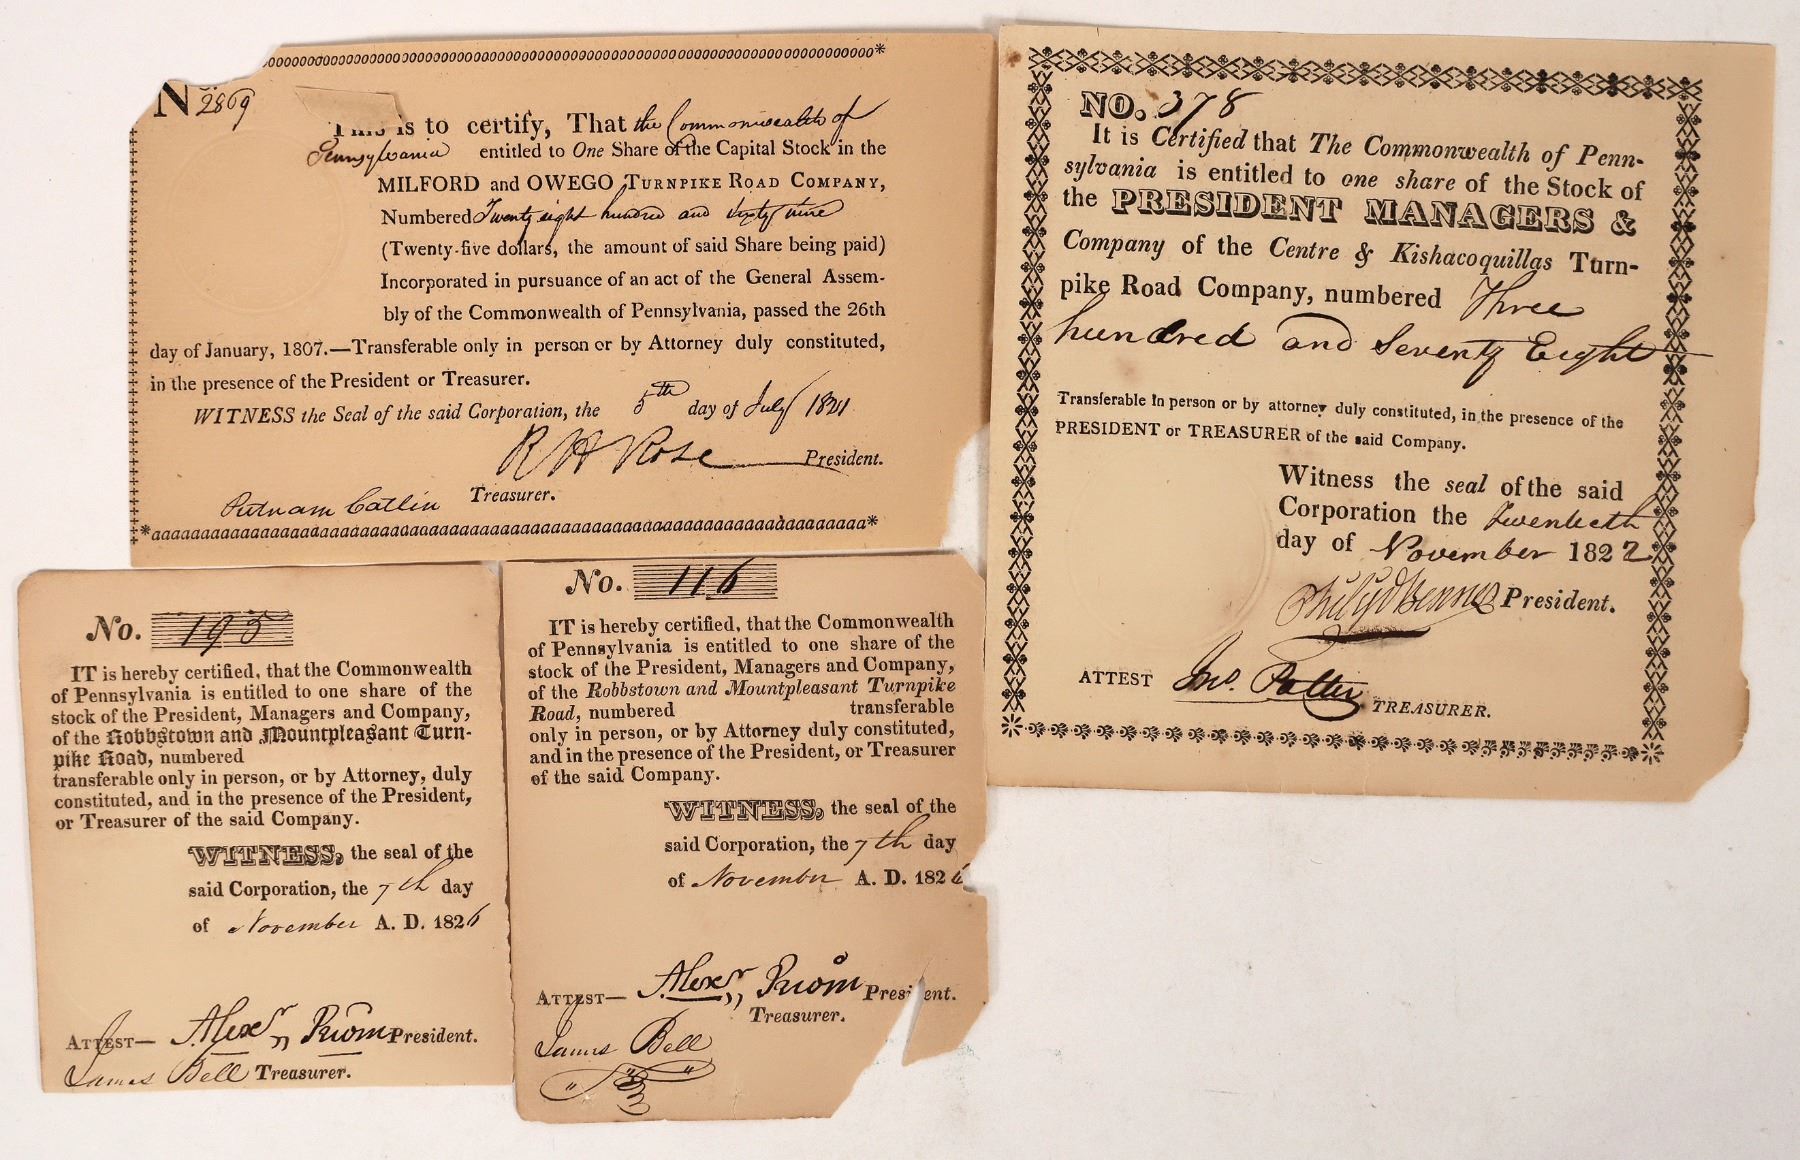 No. 2869
This is to certify, That the Commonwealth of
Pennsylvania entitled to One Share of the Capital Stock in the
MILFORD and OWEGO TURNPIKE ROAD COMPANY,
Numbered Twenty eight hundred and sixty nine
(Twenty-five dollars, the amount of said Share being paid)
Incorporated in pursuance of an act of the General Assem-
bly of the Commonwealth of Pennsylvania, passed the 26th
day of January, 1807.—Transferable only in person or by Attorney duly constituted,
in the presence of the President or Treasurer.
WITNESS the Seal of the said Corporation, the 5th day of July 1821
R H Rose President.
Putnam Catlin Treasurer.
NO. 378
It is Certified that The Commonwealth of Penn-
sylvania is entitled to one share of the Stock of
the PRESIDENT MANAGERS &
Company of the Centre & Kishacoquillas Turn-
pike Road Company, numbered Three
hundred and Seventy Eight
Transferable In person or by attorney duly constituted, in the presence of the
PRESIDENT or TREASURER of the said Company.
Witness the seal of the said
Corporation the twentieth
day of November 1822
President.
ATTEST Jno. Potter TREASURER.
No. 195
IT is hereby certified, that the Commonwealth
of Pennsylvania is entitled to one share of the
stock of the President, Managers and Company,
of the Robbstown and Mountpleasant Turn-
pike Road, numbered
transferable only in person, or by Attorney, duly
constituted, and in the presence of the President,
or Treasurer of the said Company.
WITNESS, the seal of the
said Corporation, the 7th day
of November A. D. 1826
ATTEST— Alexr. President.
James Bell Treasurer.
No. 116
IT is hereby certified, that the Commonwealth
of Pennsylvania is entitled to one share of the
stock of the President, Managers and Company,
of the Robbstown and Mountpleasant Turnpike
Road, numbered transferable
only in person, or by Attorney duly constituted,
and in the presence of the President, or Treasurer
of the said Company.
WITNESS, the seal of the
said Corporation, the 7th day
of November A. D. 1826
ATTEST— Alexr. President.
Treasurer.
James Bell